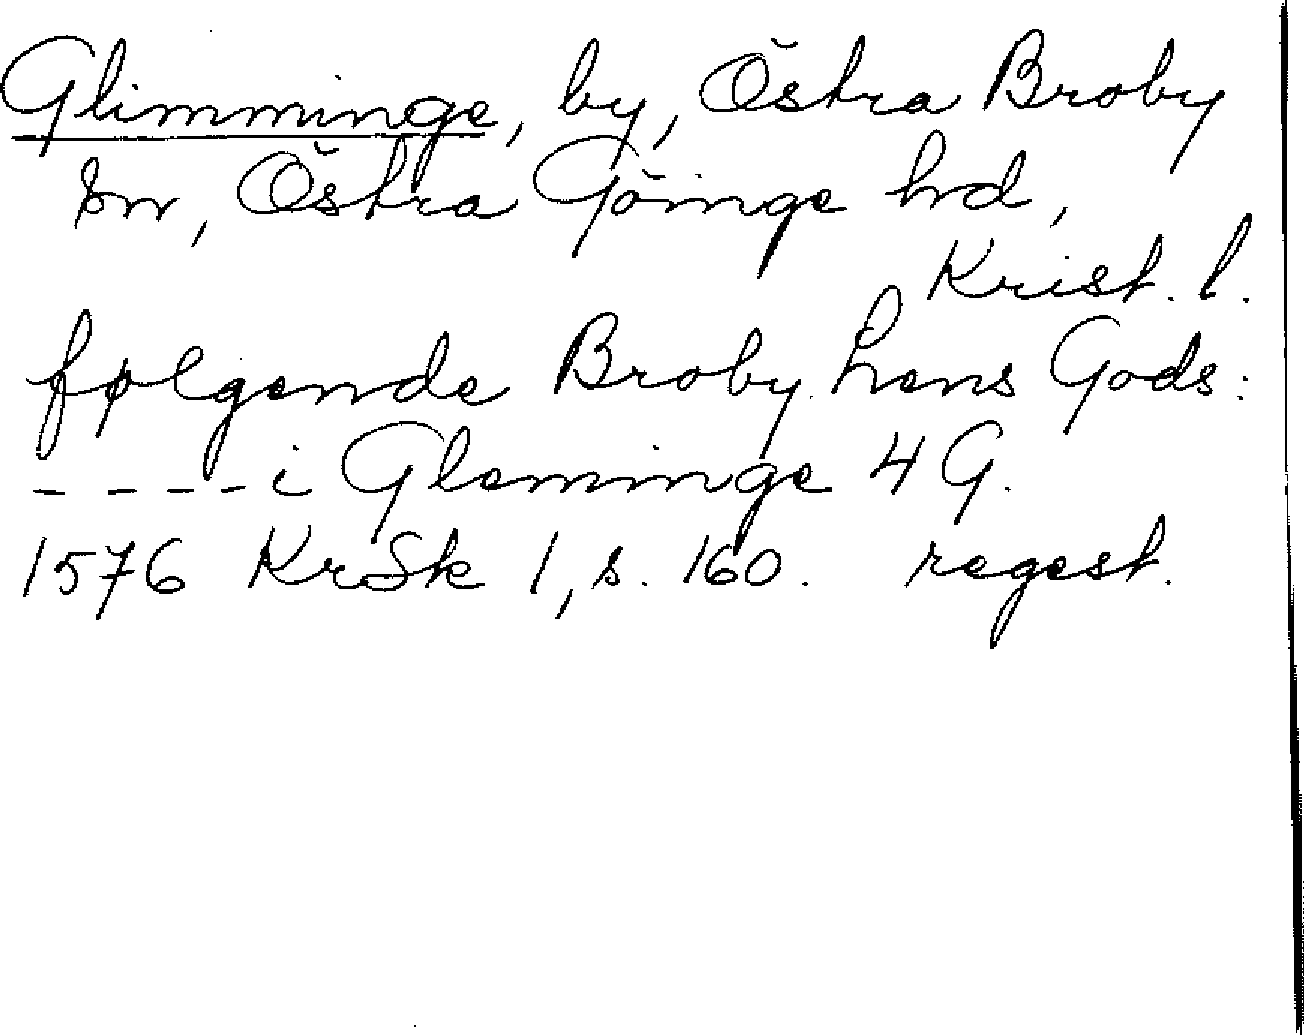 Glimminge, by, Östra Broby
sn, Östra Göinge hd,
Krist. l.
følgende Broby Lens Gods:
- - - - i Gleminge 4 G.
1576 KrSk 1, s. 160. regest.